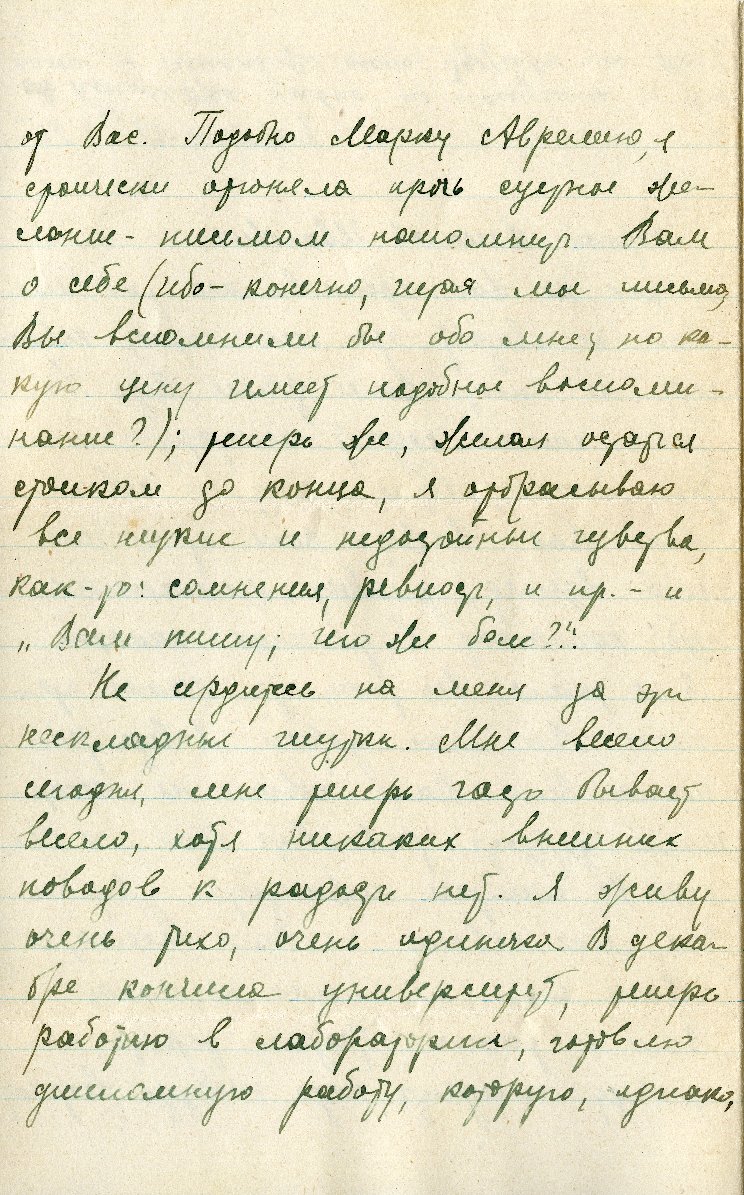 от Вас. Подобно Марку Аврелию, я
стоически отгоняла прочь суетное же-
лание - письмом напомнить Вам
о себе (ибо - конечно, читая мое письмо,
Вы вспомнили бы обо мне, но ка-
кую цену имеет подобное воспоми-
нание?); теперь же, желая остаться
стоиком до конца, я отбрасываю
все мелкие и недостойные чувства,
как-то: сомнения, ревность, и пр. - и
„Вам пишу; чего же боле?".
Не сердитесь на меня за эти
нескладные шутки. Мне весело
сегодня, мне теперь часто бывает
весело, хотя никаких внешних
поводов к радости нет. Я живу
очень тихо, очень одиноко. В дека-
бре кончила университет, теперь
работаю в лаборатории, готовлю
дипломную работу, которую, однако,